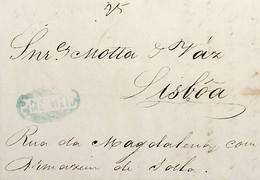 Snr.s Motta & Váz
Lisbôa
Rua da Magdalena, com
Armazem de